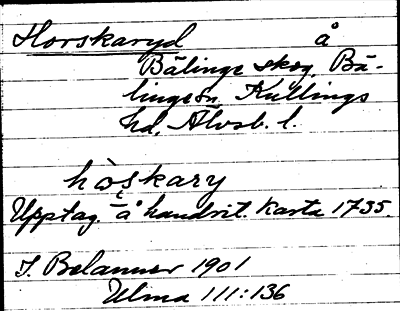 Horskaryd å
Bälinge skog, Bä-
linge sn, Kullings
hd, Älvsb. l.
hòskary
Upptag. å handrit. karta 1735.
I. Belanner 1901
Ulma 111:136